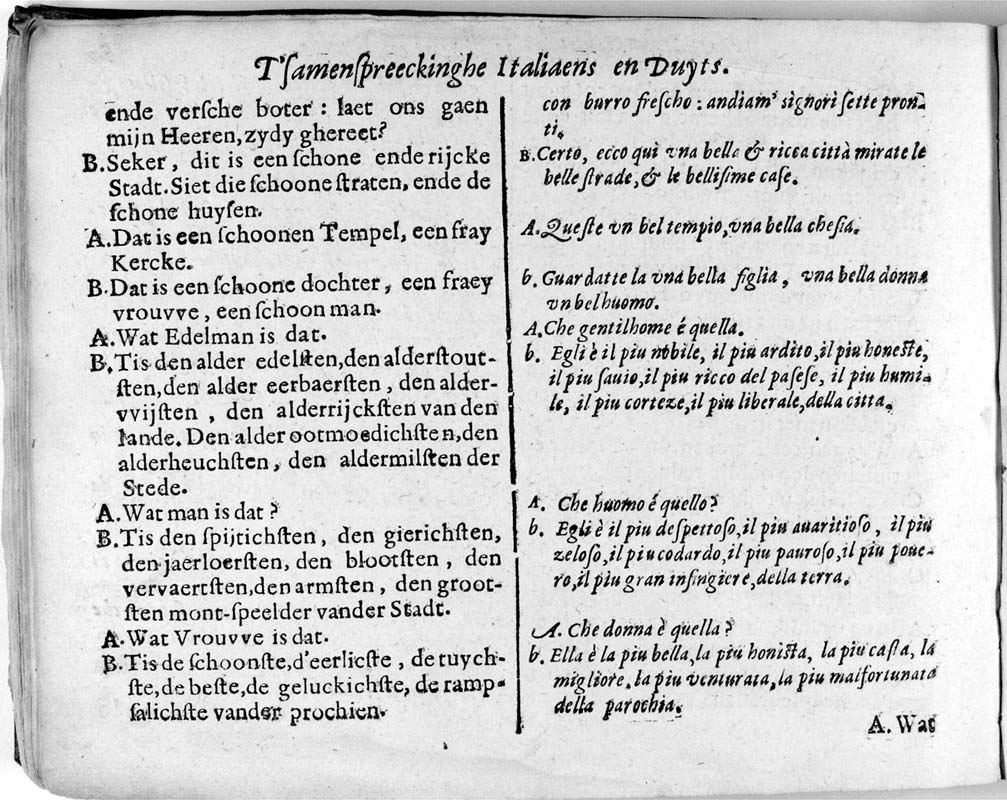 T'ſamenſpreeckinghe Italiaens en Duyts.
ende verſche boter : laet ons gaen
mijn Heeren, zydy ghereet?
B. Seker, dit is een ſchone ende rijcke
Stadt. Siet die ſchoone ſtraten, ende de
ſchone huyſen.
A. Dat is een ſchoonen Tempel, een fray
Kercke.
B. Dat is een ſchoone dochter, een fraey
vrouvve, een ſchoon man.
A. Wat Edelman is dat.
B. Tis den alder edelſten, den alderſtout-
ſten, den alder eerbaerſten, den alder-
vvijſten, den alderrijckſten van den
lande. Den alder ootmoedichſten, den
alderheuchſten, den aldermilſten der
Stede.
A. Wat man is dat?
B. Tis den ſpijtichſten, den gierichſten,
den jaerloerſten, den blootſten, den
vervaertſten, den armſten, den groot-
ſten mont-ſpeelder vander Stadt.
A. Wat Vrouvve is dat.
B. Tis de ſchoonſte, d'eerlicſte, de tuych-
ſte, de beſte, de geluckichſte, de ramp-
ſalichſte vander prochien.
con burro freſcho : andiam' signori ſette pron-
ti.
B. Certo, ecco qui vna bella & ricca città mirate le
belle ſtrade, & le belliſime caſe.
A. Queſte vn bel tempio, vna bella cheſia.
b. Guardatte la vna bella figlia, vna bella donna
vn bel huomo.
A. Che gentilhome é quella.
b. Egli è il piu nobile, il piu ardito, il piu honeſte,
il piu ſauio, il piu ricco del paſeſe, il piu humi-
le, il piu corteze, il piu liberale, della citta.
A. Che huomo é quello?
b. Egli è il piu deſpettoſo, il piu auaritioſo, il piu
zeloſo, il piu codardo, il piu pauroſo, il piu poue-
ro, il piu gran infingiere, della terra.
A. Che donna è quella?
b. Ella è la piu bella, la piu honiſta, la piu caſta, la
migliore, la piu venturata, la piu malfortunata
della parochia.
A. Wat